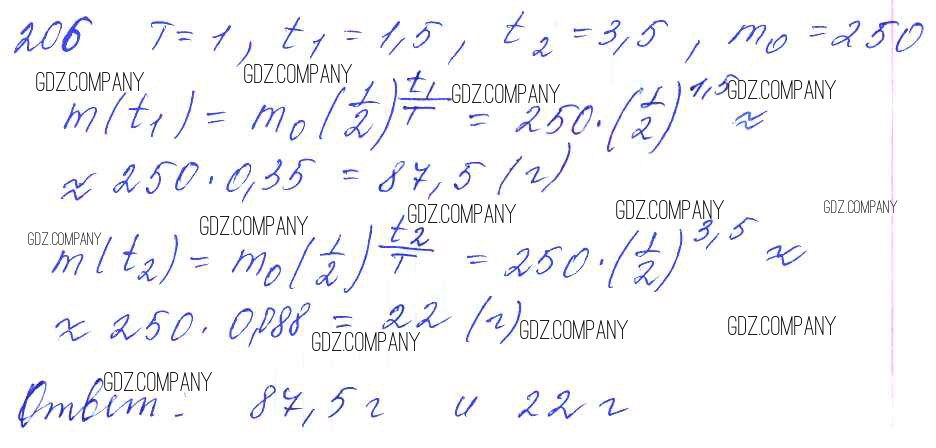 206 T = 1, t₁ = 1,5, t₂ = 3,5, m₀ = 250
GDZ.COMPANY GDZ.COMPANY GDZ.COMPANY GDZ.COMPANY
m(t₁) = m₀(1/2)^(t₁/T) = 250·(1/2)^1,5 ≈
≈ 250·0,35 = 87,5 (г)
GDZ.COMPANY GDZ.COMPANY GDZ.COMPANY GDZ.COMPANY GDZ.COMPANY
m(t₂) = m₀(1/2)^(t₂/T) = 250·(1/2)^3,5 ≈
≈ 250·0,088 = 22 (г)
GDZ.COMPANY GDZ.COMPANY GDZ.COMPANY
GDZ.COMPANY
Ответ: 87,5 г и 22 г